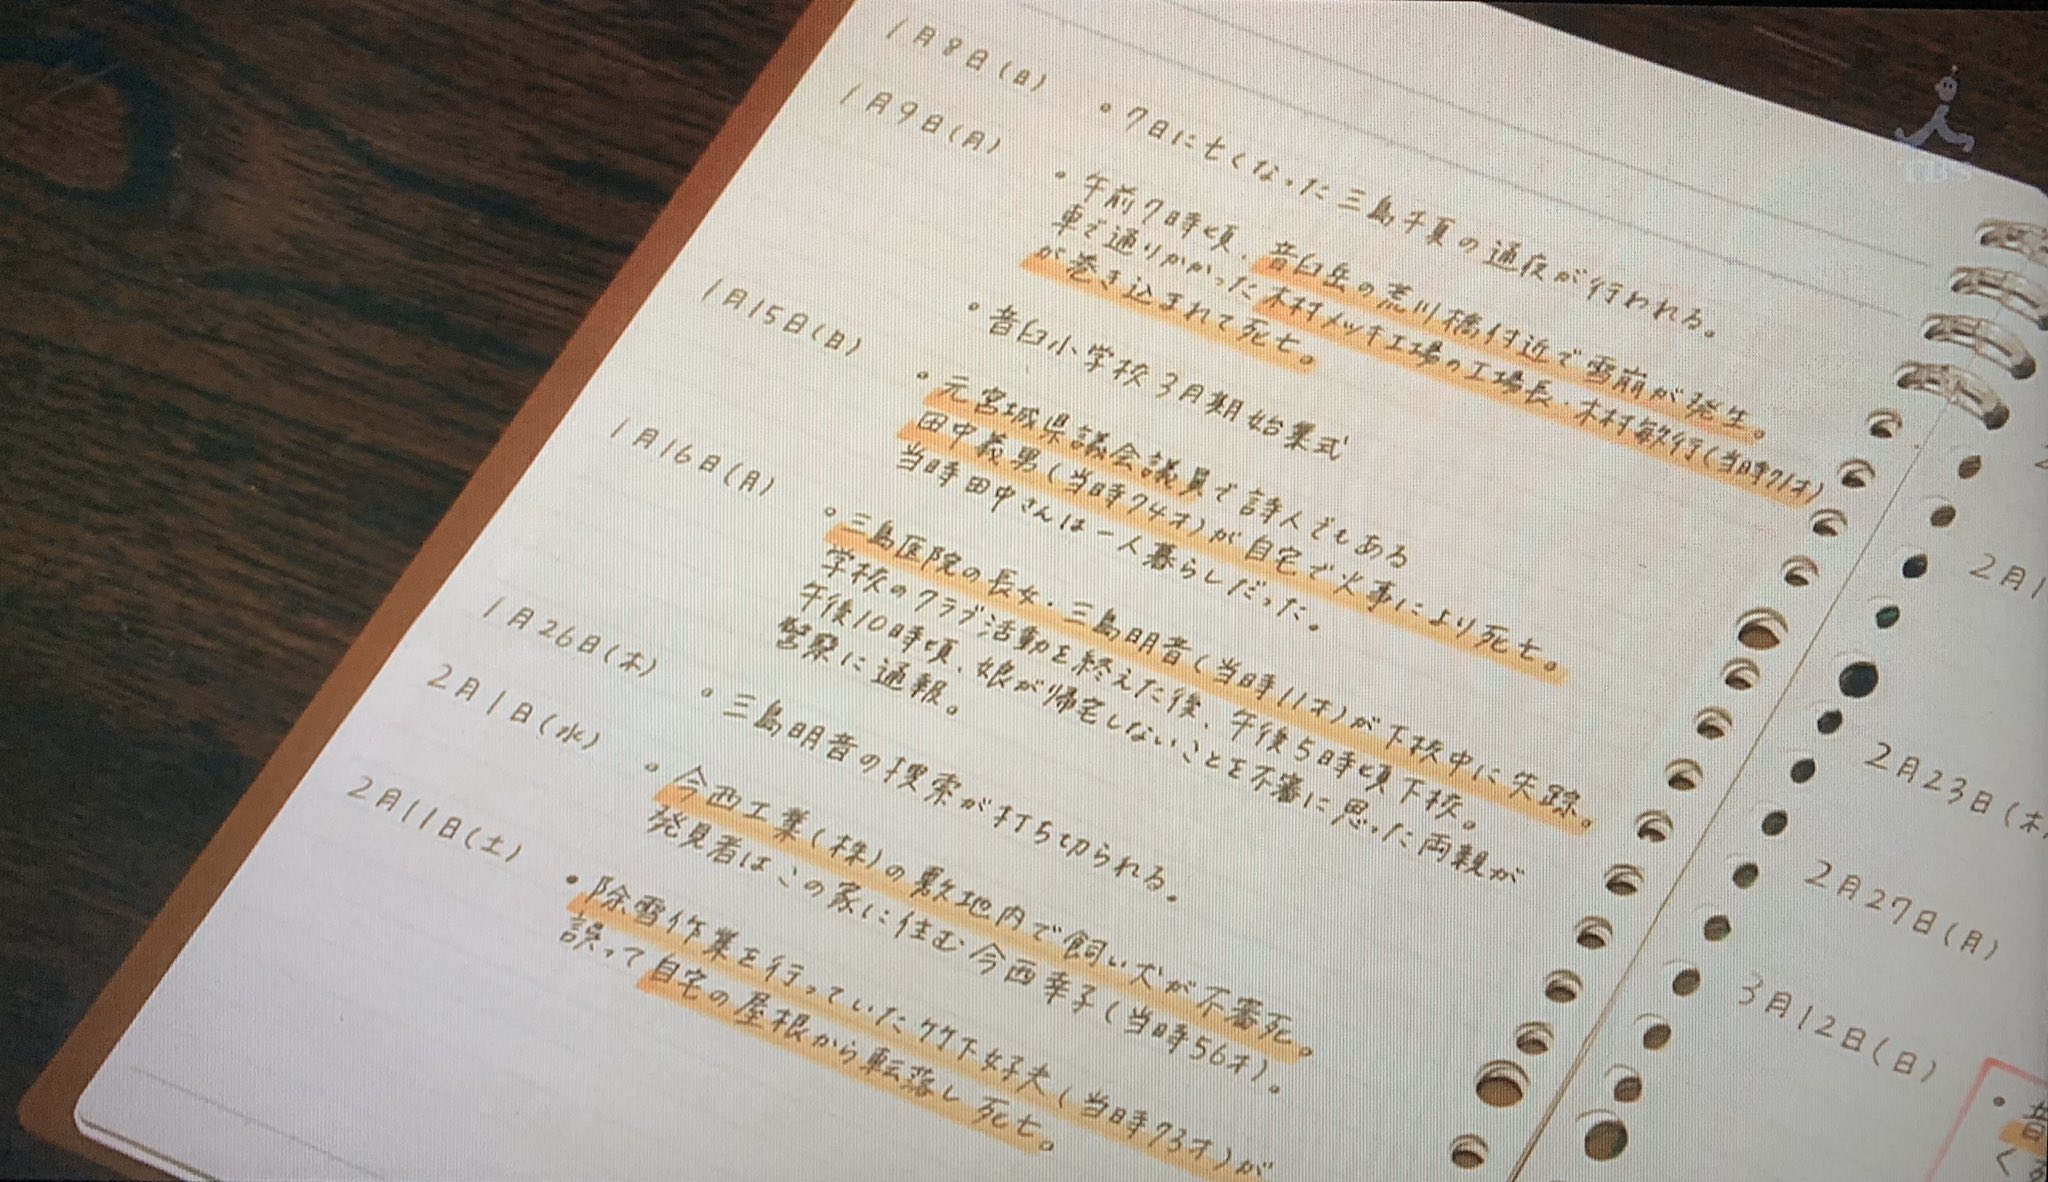 1月8日(日)
・7日に亡くなった三島千夏の通夜が行われる。
1月9日(月)
・午前7時頃、音臼岳の荒川橋付近で雪崩が発生。
車で通りかかった木村メッキ工場の工場長・木村敏行(当時71才)
が巻き込まれて死亡。
1月15日(日)
・音臼小学校3月期始業式
1月16日(月)
・元宮城県議会議員で詩人でもある
田中義男(当時74才)が自宅で火事により死亡。
当時田中さんは一人暮らしだった。
・三島医院の長女・三島明音(当時11才)が下校中に失踪。
学校のクラブ活動を終えた後、午後5時頃下校。
午後10時頃、娘が帰宅しないことを不審に思った両親が
警察に通報。
1月26日(木)
・三島明音の捜索が打ち切られる。
2月1日(水)
・今西工業(株)の敷地内で飼い犬が不審死。
発見者はこの家に住む今西幸子(当時56才)。
2月11日(土)
・除雪作業を行っていた竹下好夫(当時73才)が
誤って自宅の屋根から転落し死亡。
2月1
2月23日(木
2月27日(月)
3月12日(日)
・音
くる
TBS